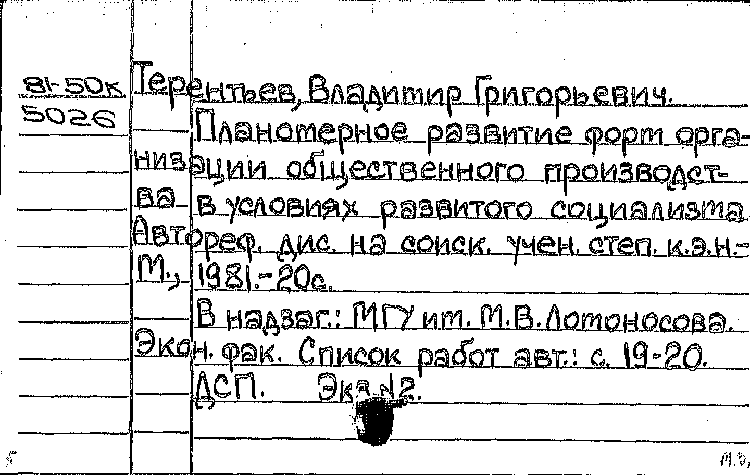 81-50к Терентьев, Владимир Григорьевич.
5026 Планомерное развитие форм орга-
низации общественного производст-
ва в условиях развитого социализма
Автореф. дис. на соиск. учен. степ. к.э.н.-
М., 1981.-20с.
В надзаг.: МГУ им. М.В.Ломоносова.
Экон. фак. Список работ авт.: с. 19-20.
ДСП. Экз. №2.
М.В,